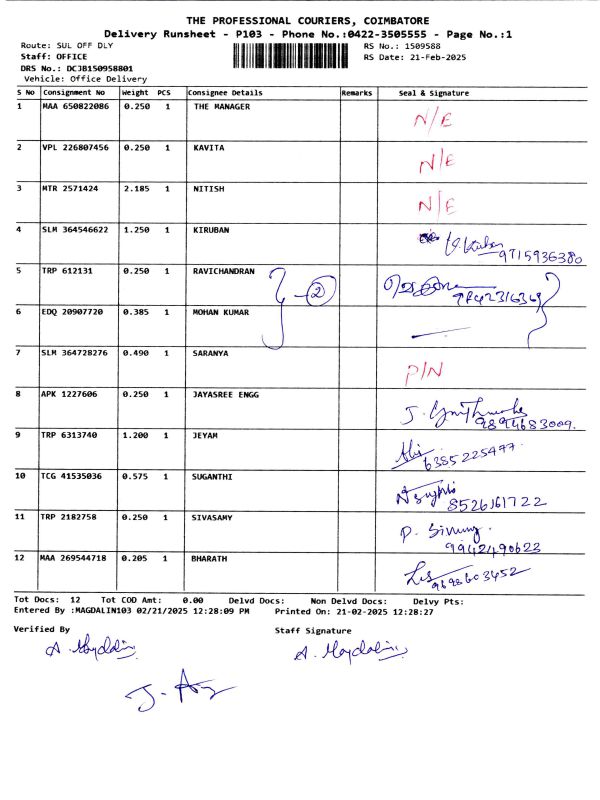 THE PROFESSIONAL COURIERS, COIMBATORE
Delivery Runsheet - P103 - Phone No.:0422-3505555 - Page No.:1
Route: SUL OFF DLY RS No.: 1509588
Staff: OFFICE RS Date: 21-Feb-2025
DRS No.: DCJB150958801
Vehicle: Office Delivery
S No Consignment No Weight PCS Consignee Details Remarks Seal & Signature
1 MAA 650822086 0.250 1 THE MANAGER N/E
2 VPL 226807456 0.250 1 KAVITA N/E
3 MTR 2571424 2.185 1 NITISH N/E
4 SLM 364546622 1.250 1 KIRUBAN 9715936380
5 TRP 612131 0.250 1 RAVICHANDRAN 2
6 EDQ 20907720 0.385 1 MOHAN KUMAR
7 SLM 364728276 0.490 1 SARANYA P/N
8 APK 1227606 0.250 1 JAYASREE ENGG 9894683009.
9 TRP 6313740 1.200 1 JEYAM 6385225977.
10 TCG 41535036 0.575 1 SUGANTHI 8526161722
11 TRP 2182758 0.250 1 SIVASAMY 9942490623
12 MAA 269544718 0.205 1 BHARATH 9698603452
Tot Docs: 12 Tot COD Amt: 0.00 Delvd Docs: Non Delvd Docs: Delvy Pts:
Entered By :MAGDALIN103 02/21/2025 12:28:09 PM Printed On: 21-02-2025 12:28:27
Verified By Staff Signature
A. Magdalin A. Magdalin